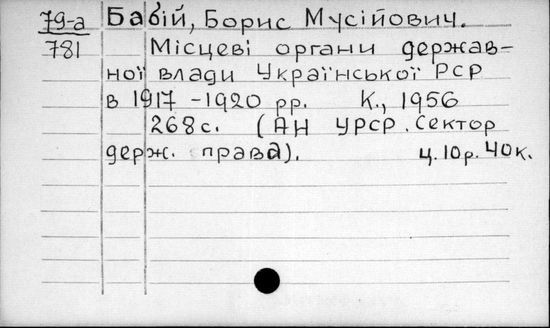 79-а Бабій, Борис Мусійович.
781 Місцеві органи держав-
ної влади Української РСР
в 1917-1920 рр. К., 1956
268 с. (АН УРСР. Сектор
держ. права). ц. 10р. 40к.